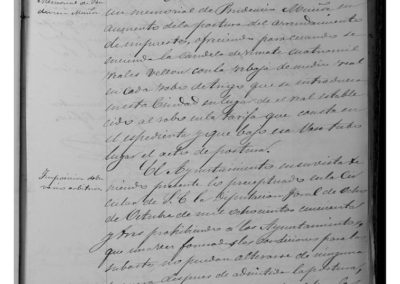 Memorial de Pru-
dencio Muñoz
un memorial de Prudencio Muñoz en
aumento de la postura del arrendamiento
de impuestos, ofreciendo para cuando se
encienda la candela de remate cuatro mil
reales vellon con la rebaja de medio real
en cada robo de trigo que se introduzca
en esta Ciudad en lugar de el real estable
cido al robo en la tarifa que consta en
el espediente y que bajo esa base tubo
lugar el acto de postura.
El Ayuntamiento en su vista te
niendo presente lo preceptuado en la Cir
cular de S. E. la Diputacion foral de
de Octubre de mil ochocientos cincuenta
y tres prohibiendo a los Ayuntamientos,
que una vez formadas las condiciones para la
subasta no puedan alterarse de ninguna
despues de admitida la postura,